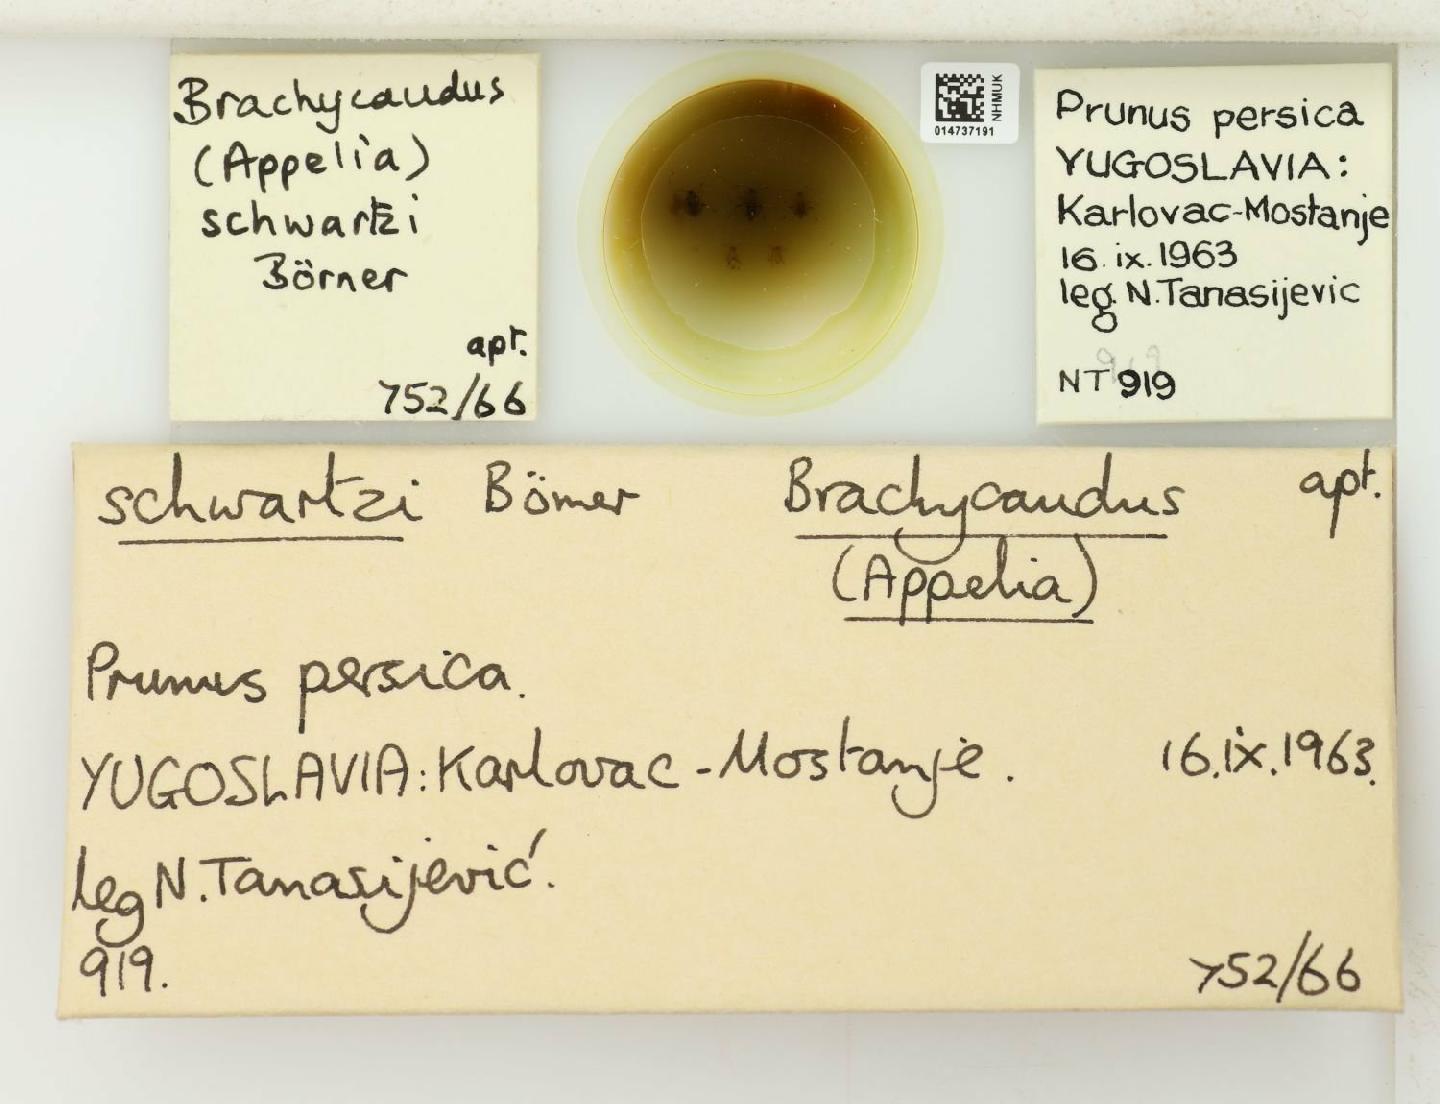 Brachycaudus
(Appelia)
schwartzi
Börner
apt.
752/66
NHMUK
014737191
Prunus persica
YUGOSLAVIA:
Karlovac-Mostanje
16.ix.1963
leg. N.Tanasijevic
NT 919
schwartzi Börner Brachycaudus apt.
(Appelia)
Prunus persica.
YUGOSLAVIA: Karlovac-Mostanje. 16.ix.1963.
leg N.Tanasijević.
919.
752/66